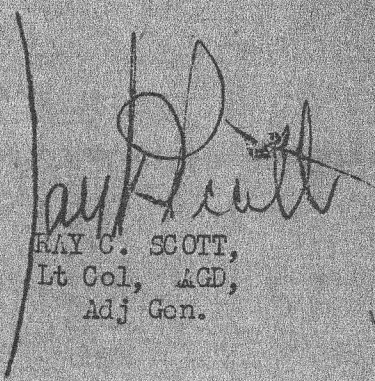 Ray Scott
RAY C. SCOTT,
Lt Col, AGD,
Adj Gen.